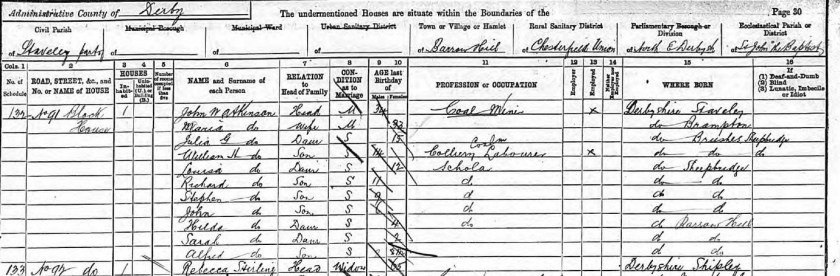 Administrative County of Derby The undermentioned Houses are situate within the Boundaries of the Page 30
Civil Parish Municipal Borough Municipal Ward Urban Sanitary District Town or Village or Hamlet Rural Sanitary District Parliamentary Borough or Division Ecclesiastical Parish or District
of Staveley party of of of of Barrow Hill of Chesterfield Union of North E Derbysh of St John the Baptist
Cols. 1 2 3 4 5 6 7 8 9 10 11 12 13 14 15 16
No. of Schedule ROAD, STREET, &c., and No. or NAME of HOUSE HOUSES Inhabited Uninhabited (U.) or Building (B.) Number of rooms occupied if less than five NAME and Surname of each Person RELATION to Head of Family CONDITION as to Marriage AGE last Birthday of Males Females PROFESSION or OCCUPATION Employer Employed Neither WHERE BORN If (1) Deaf-and-Dumb (2) Blind (3) Lunatic, Imbecile or Idiot
132 No 91 Block House 1 John W Atkinson Head M Coal Mine x Derbyshire Staveley
Maria do Wife M do Brampton
Julia G do Daur S 15 do Brushes Sheepbridge
William H do Son S 14 Colliery Labourer x do do do
Louisa do Daur S 12 Schola do Sheepbridge
Richard do Son S 11 d do do
Stephen do Son S 9 d do do
John do Son S d do do
Hilda do Daur S 4 do do Barrow Hill
Sarah do Daur S 2 do do
Alfred do Son S do do
133 No 92 do 1 Rebecca Stirling Head Widow Derbyshire Shipley